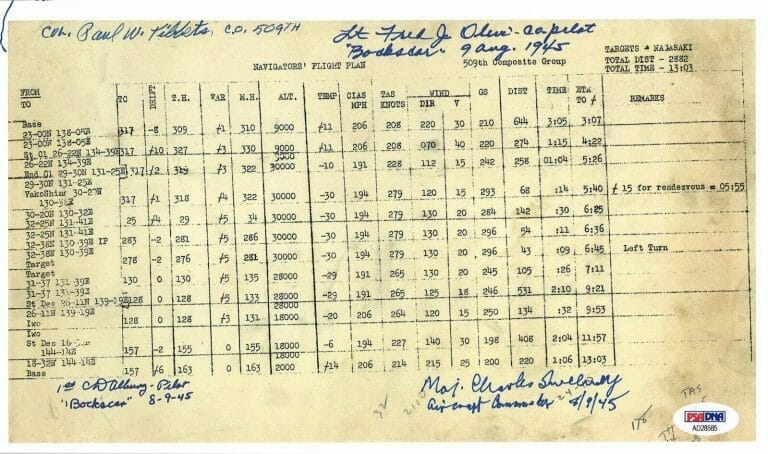 COL. Paul W. Tibbets, C.O. 509TH
Lt Fred J Olivi - copilot
"Bockscar" 9 aug. 1945
TARGETS - NAGASAKI
NAVIGATORS' FLIGHT PLAN 509th Composite Group TOTAL DIST - 2882
TOTAL TIME - 13:03
FROM TO TO DRIFT T.H. VAR M.H. ALT. TEMP CIAS MPH TAS KNOTS WIND DIR V GS DIST TIME ETA TO REMARKS
Base
23-00N 138-05E 317 -8 309 /1 310 9000 /11 206 208 220 30 210 644 3:05 3:07
23-00N 138-05E
St Cl 26-22N 134-39E 317 /10 327 /3 330 9000 /11 206 208 070 40 220 274 1:15 4:22
26-22N 134-39E
End Cl 29-30N 131-25E 317 /2 319 /3 322 30000 -10 191 228 112 15 242 258 01:04 5:26
29-30N 131-25E
YakoShima 30-20N
317 /1 318 /4 322 30000 -30 194 279 120 15 293 68 :14 5:40 / 15 for rendezvous = 05:55
30-20N 130-32E
32-25N 131-41E 25 /4 29 /5 34 30000 -30 194 279 130 20 284 142 :30 6:25
32-25N 131-41E
32-38N 130-39E IP 283 -2 281 /5 286 30000 -30 194 279 130 20 296 54 :11 6:36
32-38N 130-39E
Target 278 -2 276 /5 281 30000 -30 194 279 130 20 296 43 :09 6:45 Left Turn
Target
31-37 131-39E 130 0 130 /5 135 28000 -29 191 265 130 20 245 105 :26 7:11
31-37 131-39E
St Des 26-11N 139-19E 128 0 128 /5 133 28000 -29 191 265 125 18 246 531 2:10 9:21
26-11N 139-19E
Iwo 128 0 128 /3 131 18000 -20 206 264 120 15 250 134 :32 9:53
Iwo
St Des 157 -2 155 0 155 18000 -6 194 227 140 30 198 408 2:04 11:57
Base 157 /6 163 0 163 2000 /14 206 214 215 25 200 220 1:06 13:03
1st CD Albury - Pilot
"Bockscar" 8-9-45
Maj. Charles Sweeney
Aircraft Commander 8/9/45
PSA/DNA
AD28585